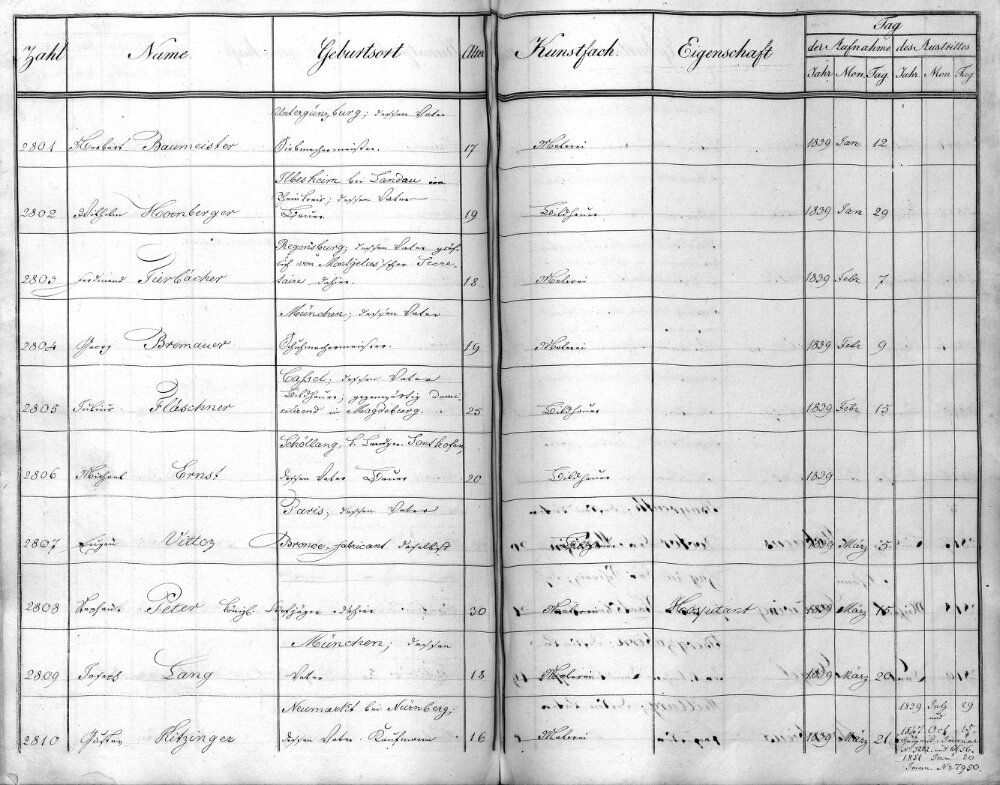 Zahl Name. Geburtsort Alter Kunstfach. Eigenschaft Tag
der Aufnahme des Austrittes
Jahr Mon. Tag Jahr. Mon. Tag.
Untergünzburg; dessen Vater
2801 Baumeister Siebmachermeister. 17 Malerei 1839 Jan 12
Ilbesheim bei Landau im
Rheinkreis; dessen Vater
2802 Wilhelm Hornberger Bauer 19 Bildhauer 1839 Jan 29
Regensburg; dessen Vater gräf-
lich von Montgelas'scher Secre-
2803 Ferdinand Tierbächer taire dahier. 18 Malerei 1839 Febr 7
München; dessen Vater
2804 Georg Bremauer Schuhmachermeister. 19 Malerei 1839 Febr 9
Cassel; dessen Vater
Bildhauer; gegenwärtig domi-
2805 Julius Fläschner cilirend in Magdeburg. 25 Bildhauer 1839 Febr 15
Schöllang, k. Landger. Sonthofen,
2806 Michael Ernst dessen Vater Bauer 20 Bildhauer 1839
Paris; dessen Vater
2807 Eugen Vittoz Bronce-fabricant daselbst 1839 März 5
2808 Peter Königl. Hofjäger dahier 30 Malerei Hospitant 1839 März 15
München; dessen
2809 Joseph Lang Vater 18 Malerei 1839 März 20
Neumarkt bei Nürnberg; 1839 July 29
2810 Gustav Kitzinger dessen Vater Kaufmann 16 Malerei 1839 März 21
und
1847 Oct 15.
1851 Jan 20
Journ. No 7950.